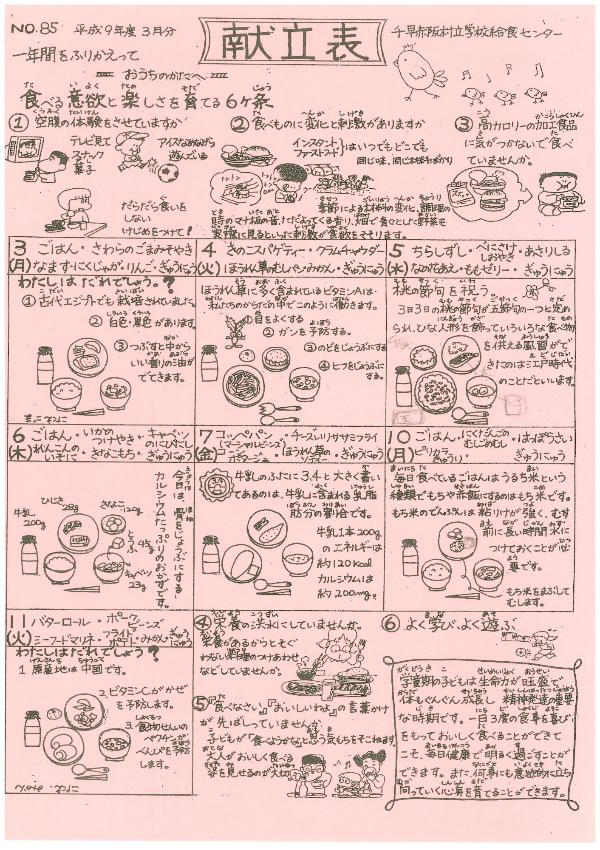 NO.85 平成9年度 3月分
献立表
千早赤阪村立学校給食センター
一年間をふりかえって
おうちのかたへ
食べる意欲と楽しさを育てる6ケ条
① 空腹の体験をさせていますか
テレビ見て
スナック
菓子
アイスなめながら
遊んでいる
だらだら食いを
しない
けじめをつけて!
② 食べものに変化と刺激がありますか
インスタント
ファーストフード
はいつもどこでも
同じ味、同じ本料ばかり
③ 高カロリーの加工食品
に気がつかないで食べ
ていませんか。
3(月) ごはん・さわらのごまみそやき
なます・にくじゃが・りんご・ぎゅうにゅう
わたしはだれでしょう。?
① 古代エジプトでも栽培されていました。
② 白色・黒色があります。
③ つぶすと中から
いい香りの油が
でてきます。
4(火) きのこスパゲティー・クラムチャウダー
ほうれん草のむしパン・みかん・ぎゅうにゅう
ほうれん草に多く含まれているビタミンAは、
私たちのからだの中でどこのように働きます。
① 目をよくする
② ガンを予防する。
③ のどをじょうぶにする
④ ヒフをじょうぶに
する。
5(水) ちらしずし・べにざけしおやき・あさりじる
なのはなあえ・ももゼリー・ぎゅうにゅう
桃の節句を祝う。
3月3日の桃の節句が五節句の一つと定め
られ、ひな人形を飾っていろいろな食べ物
を供える風習がで
きたのは江戸時代
のことだといいます。
6(木) ごはん・いかのつけやき・キャベツのにびたし
れんこんのいそに・きなこもち・ぎゅうにゅう
今日は、骨をじょうぶにする
カルシウムたっぷりのおかずです。
牛乳
200g
ひじき
キャベツ
23g
7(金) コッペパン(マーシャルビーンズ)・チーズレリササミフライ
コーンポタージュ・ほうれん草のソテー・ぎゅうにゅう
牛乳のふたに3.4と大きく書い
てあるのは、牛乳に含まれる乳脂
肪分の割合です。
牛乳1本200g
のエネルギーは
約120kcal
カルシウムは
約200mg。
10(月) ごはん・にくだんごのむしにもむし・はっぽうさい
ピリカラきゅうり・ぎゅうにゅう
毎日食べているごはんはうるち米という
種類でもちや赤飯にするのはもち米です。
もち米のでんぷんは粘りけが強く、むす
前に長い時間水に
つけておくことが必
要です。
もち米をまぜして
むします。
11(火) バターロール・ポークビーンズ
シーフードマリネ・フライドポテト・みかん・ぎゅうにゅう
わたしはだれでしょう?
1 原産地は中国です。
2.ビタミンCがかぜ
を予防します。
3.食物せんいの
ペクチンが
べんぴを予防
します。
④ 栄養の洪水にしていませんか。
栄養があるからとそぐ
わない料理のつけあわせ
などしていませんか。
⑤ 「食べなさい」「おいしいわよ」の言葉かけ
が先ばしっていませんか
子どもが「食べようかな」と思う気もちをそこねます。
大人がおいしく食べる
姿を見せるのが大切
⑥ よく学び、よく遊ぶ
学童期の子どもは生命力が旺盛で、
体もぐんぐん成長し、精神発達の重要
な時期です。一日3度の食事を喜び
をもっておいしく食べることができて
こそ、毎日健康で明るく過ごすことが
できます。また何事にも意欲的に立ち
向っていく心身を育てることができます。